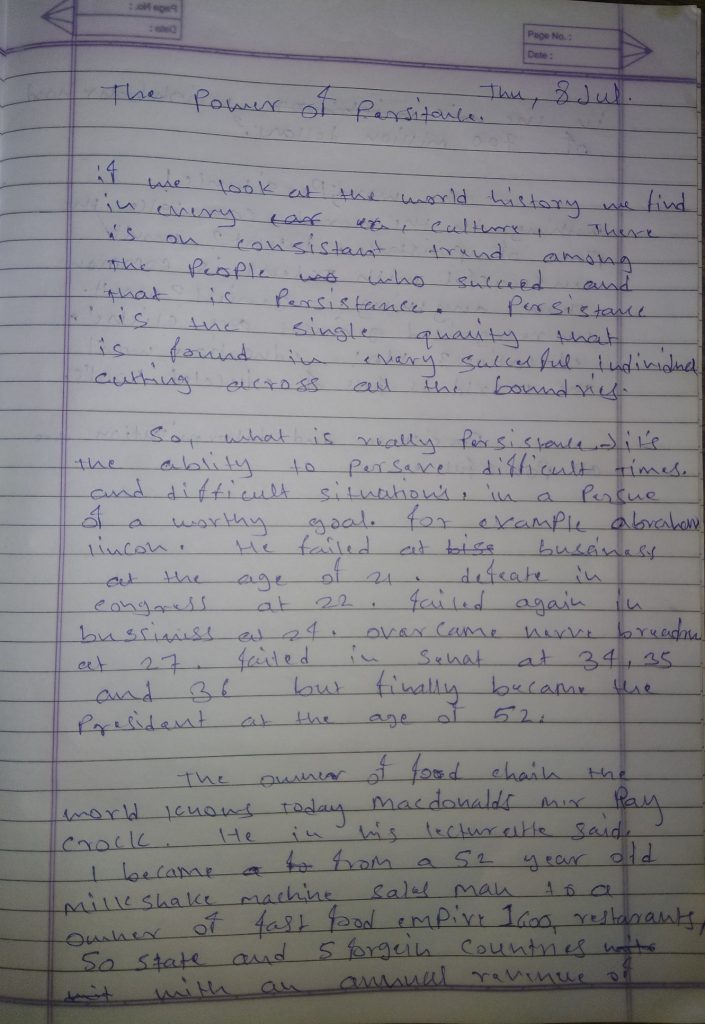 Page No.:
Date:
Page No.:
Date:
Thu, 8 Jul.
The Power of Persitance.
if we look at the world history we find
in every car ex, culture, There
is on consistant trend among
the People wo who succeed and
that is Persistance. Persistance
is the single quaity that
is found in every succesful individual
cutting across all the boundries.
So, what is really Persistance → it's
the ablity to Persave difficult times.
and difficult situations, in a Persue
of a worthy goal. for example abraham
lincon. He failed at biss bussiness
at the age of 21. defeate in
congress at 22. failed again in
bussiness at 24. overcame nerve breadn
at 27. failed in Senat at 34, 35
and 36 but finally became the
President at the age of 52.
The owner of food chain the
world knows today Macdonalds mir Ray
Crock. He in his lecture said.
I became a to from a 52 year old
milk shake machine sales man to a
owner of fast food empire 1600 restarants,
50 state and 5 forgein countries
with an annual revenue of